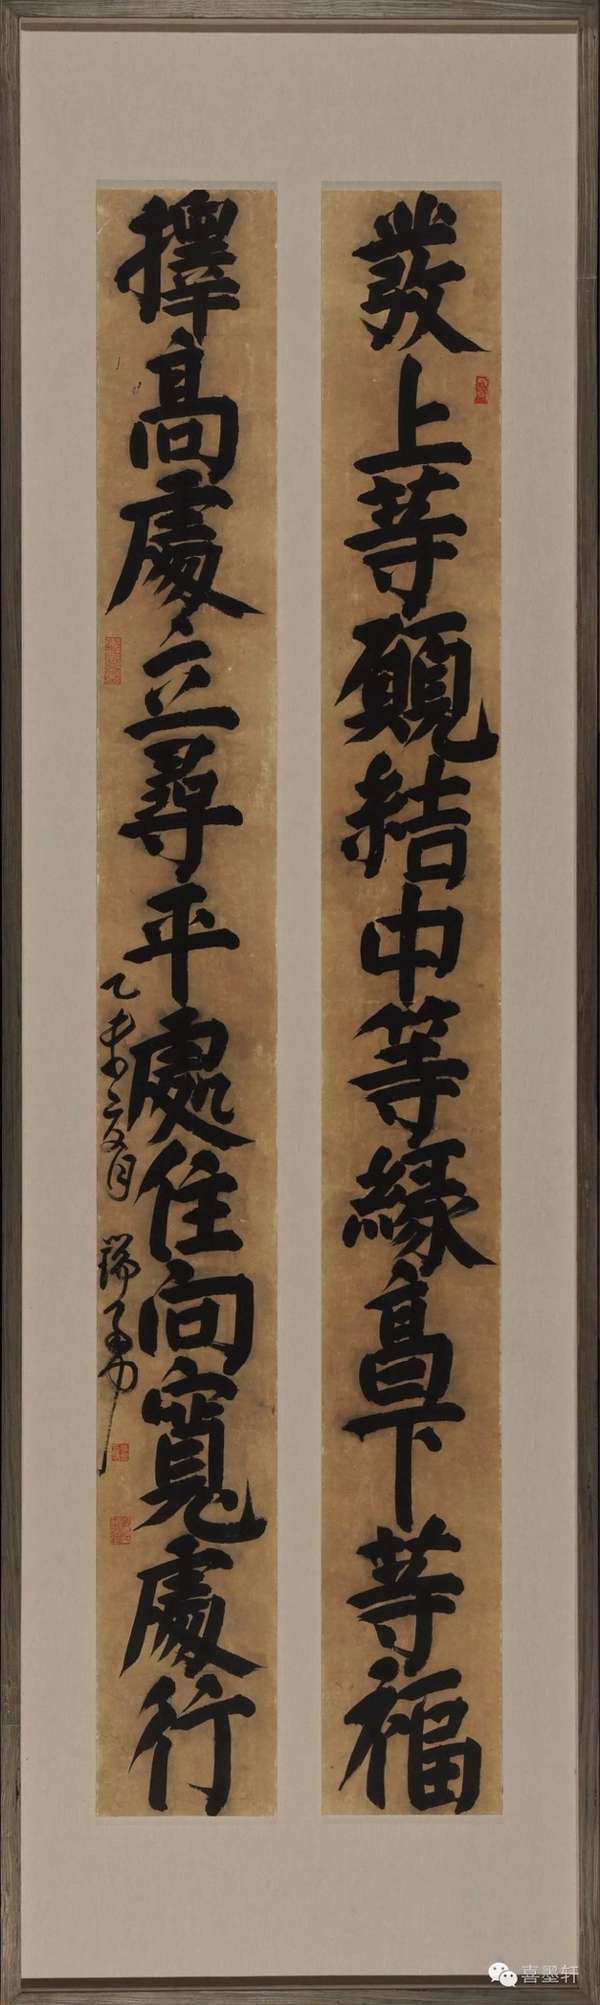 發上等願結中等緣享下等福
擇高處立尋平處住向寬處行
乙未二月 瑞
喜墨轩